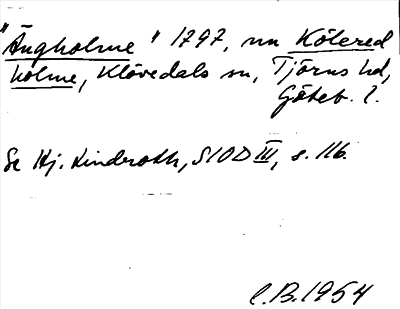 "Ängholme" 1797, nu Kölered
holme, Klövedals sn, Tjörns hd,
Göteb. l.
Se Hj. Lindroth, SIOD III, s. 116.
C.B. 1954